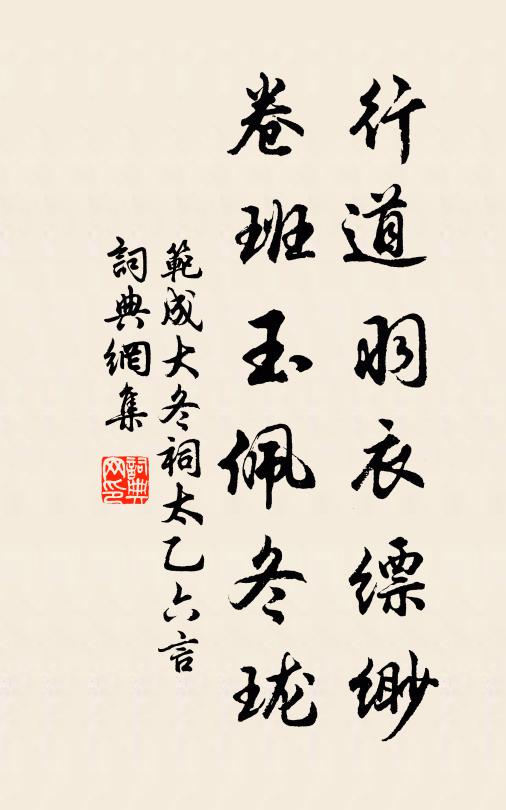 行道羽衣縹緲
卷班玉佩冬珑
範成大冬祠太乙六言
詞典網集
詞典网印